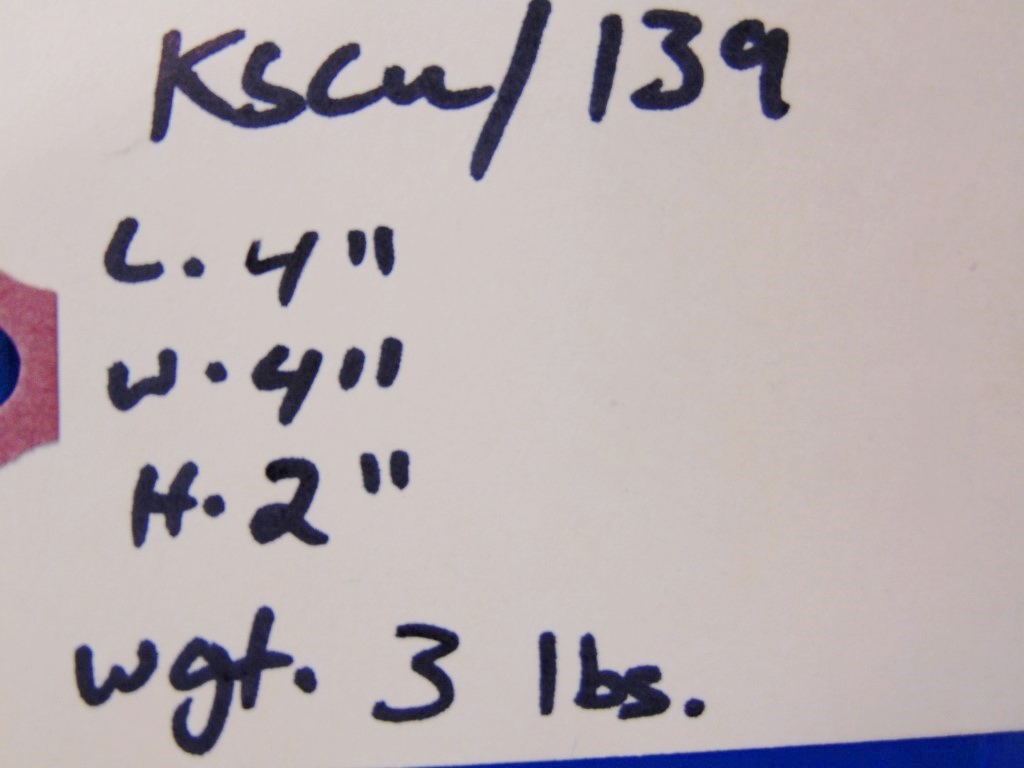 Kscu/139
L. 4"
W. 4"
H. 2"
wgt. 3 lbs.